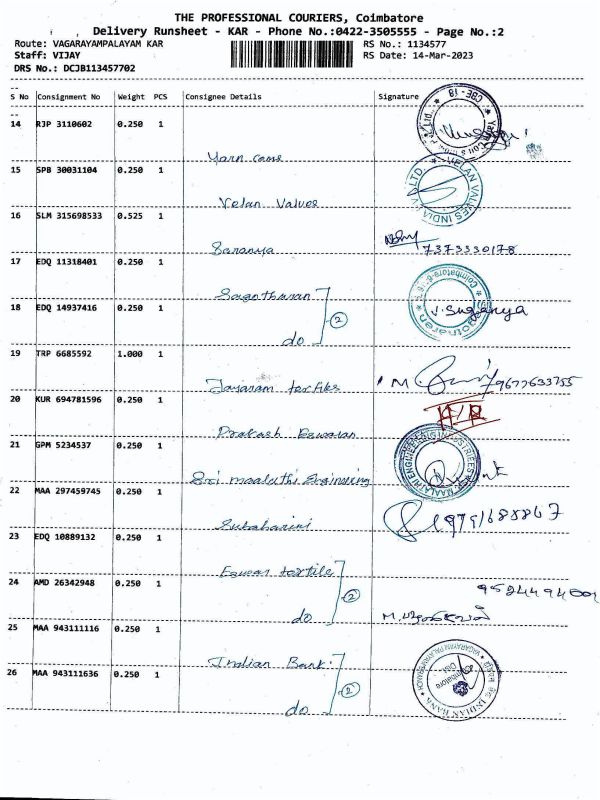 THE PROFESSIONAL COURIERS, Coimbatore
Delivery Runsheet - KAR - Phone No.:0422-3505555 - Page No.:2
Route: VAGARAYAMPALAYAM KAR
RS No.: 1134577
Staff: VIJAY
RS Date: 14-Mar-2023
DRS No.: DCJB113457702
S No Consignment No Weight PCS Consignee Details Signature
14 RJP 3110602 0.250 1
CBE-18
Yarn cone
15 SPB 30031104 0.250 1
VELAN VALVES INDIA
LTD.
Velan Valves
16 SLM 315698533 0.525 1
Saranya 7373330178
17 EDQ 11318401 0.250 1
Sagotharan
18 EDQ 14937416 0.250 1
do 2
V. Suganya
19 TRP 6685592 1.000 1
Jayaram textiles M 9677633755
20 KUR 694781596 0.250 1
Prakash Eswaran
21 GPM 5234537 0.250 1
Sri maaluthi Engineering
22 MAA 297459745 0.250 1
Subaharini 9791688867
23 EDQ 10889132 0.250 1
Eswar textile
24 AMD 26342948 0.250 1
do 2
25 MAA 943111116 0.250 1
Indian Bank
26 MAA 943111636 0.250 1
do 2
INDIAN BANK